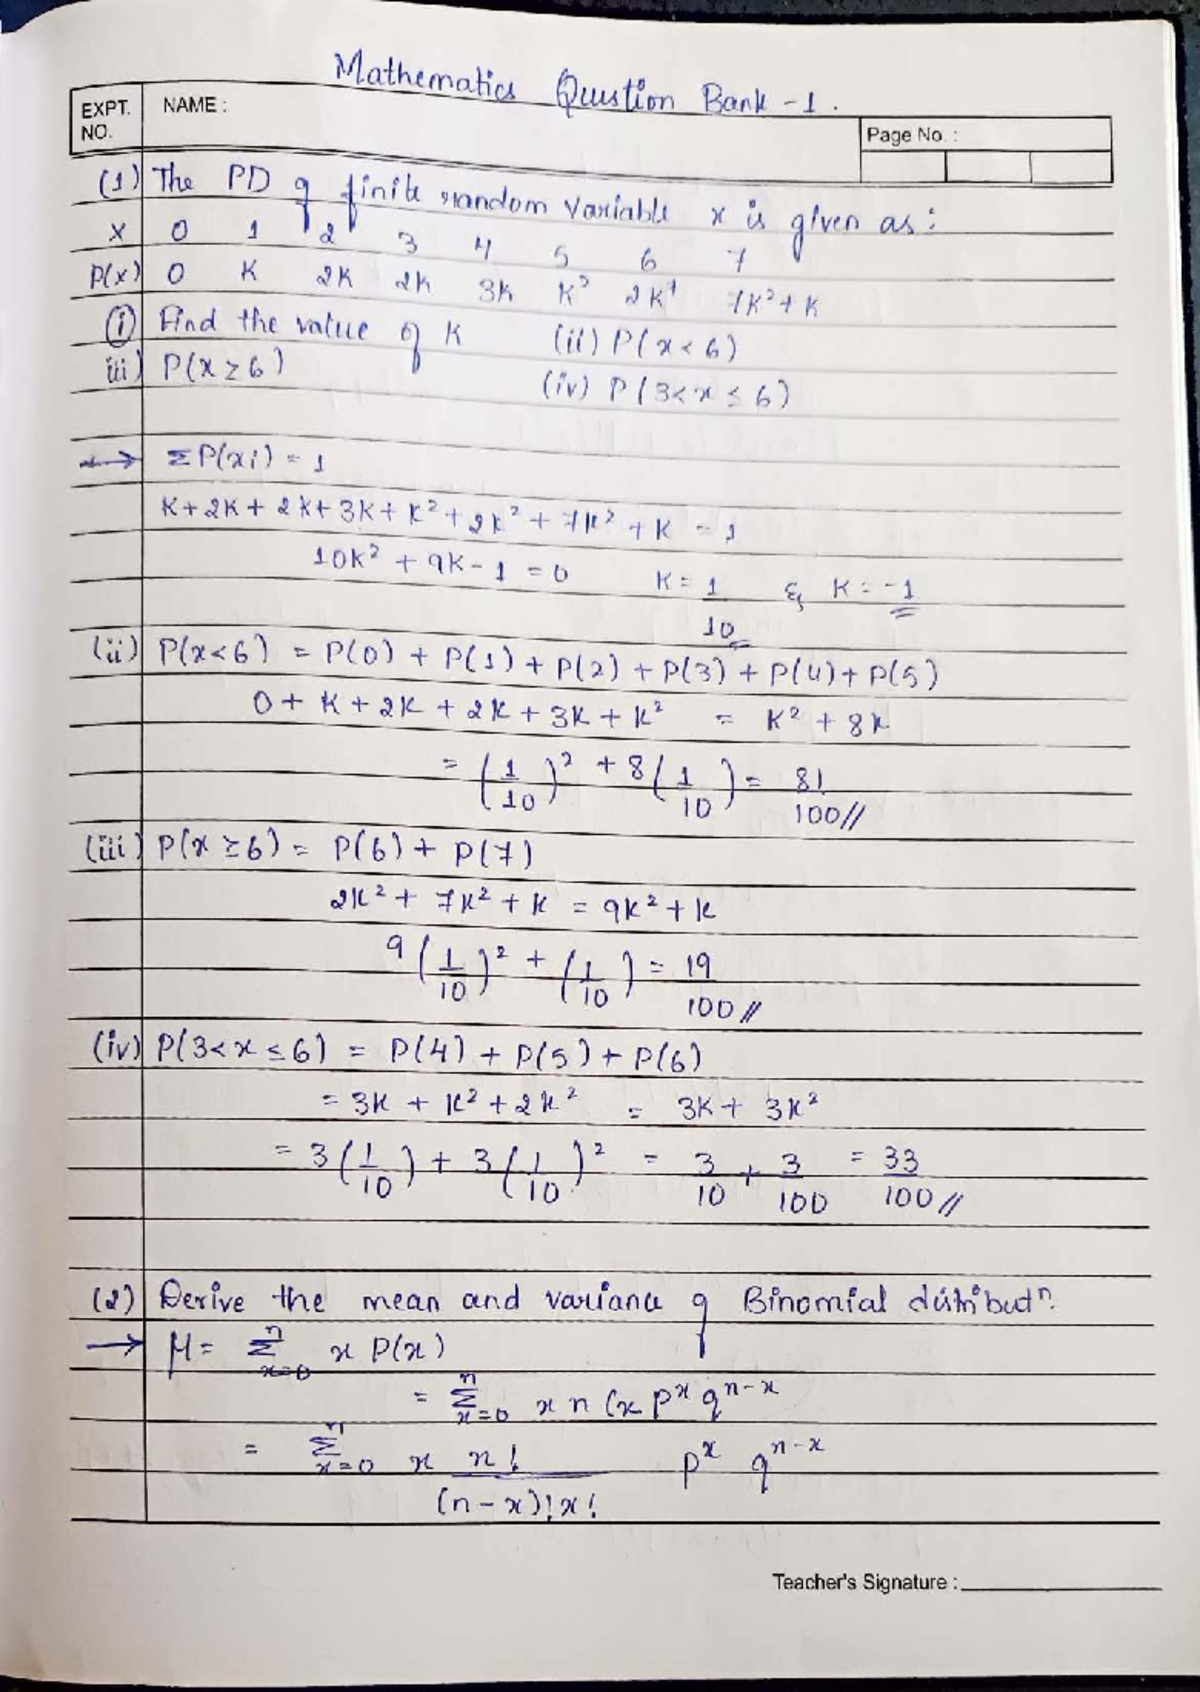 Mathematics Question Bank - 1.
EXPT. NO.
NAME :
Page No. :
(1) The PD of finite random variable x is given as:
x 0 1 2 3 4 5 6 7
P(x) 0 K 2K 2K 3K K² 2K² 7K²+K
(i) Find the value of K (ii) P(x<6)
iii) P(x≥6) (iv) P(3<x≤6)
→ ΣP(xi) = 1
K+2K+2K+3K+K²+2K²+7K²+K = 1
10K² + 9K - 1 = 0 K = 1/10 & K = -1
(ii) P(x<6) = P(0) + P(1) + P(2) + P(3) + P(4) + P(5)
0 + K + 2K + 2K + 3K + K² = K² + 8K
= (1/10)² + 8(1/10) = 81/100//
(iii) P(x≥6) = P(6) + P(7)
2K² + 7K² + K = 9K² + K
9(1/10)² + (1/10) = 19/100//
(iv) P(3<x≤6) = P(4) + P(5) + P(6)
= 3K + K² + 2K² = 3K + 3K²
= 3(1/10) + 3(1/10)² = 3/10 + 3/100 = 33/100//
(2) Derive the mean and variance of Binomial distributⁿ.
→ μ = Σⁿₓ₌₀ x P(x)
= Σⁿₓ₌₀ x nCx pˣ qⁿ⁻ˣ
= Σⁿₓ₌₀ x n!/(n-x)!x! pˣ qⁿ⁻ˣ
Teacher's Signature :